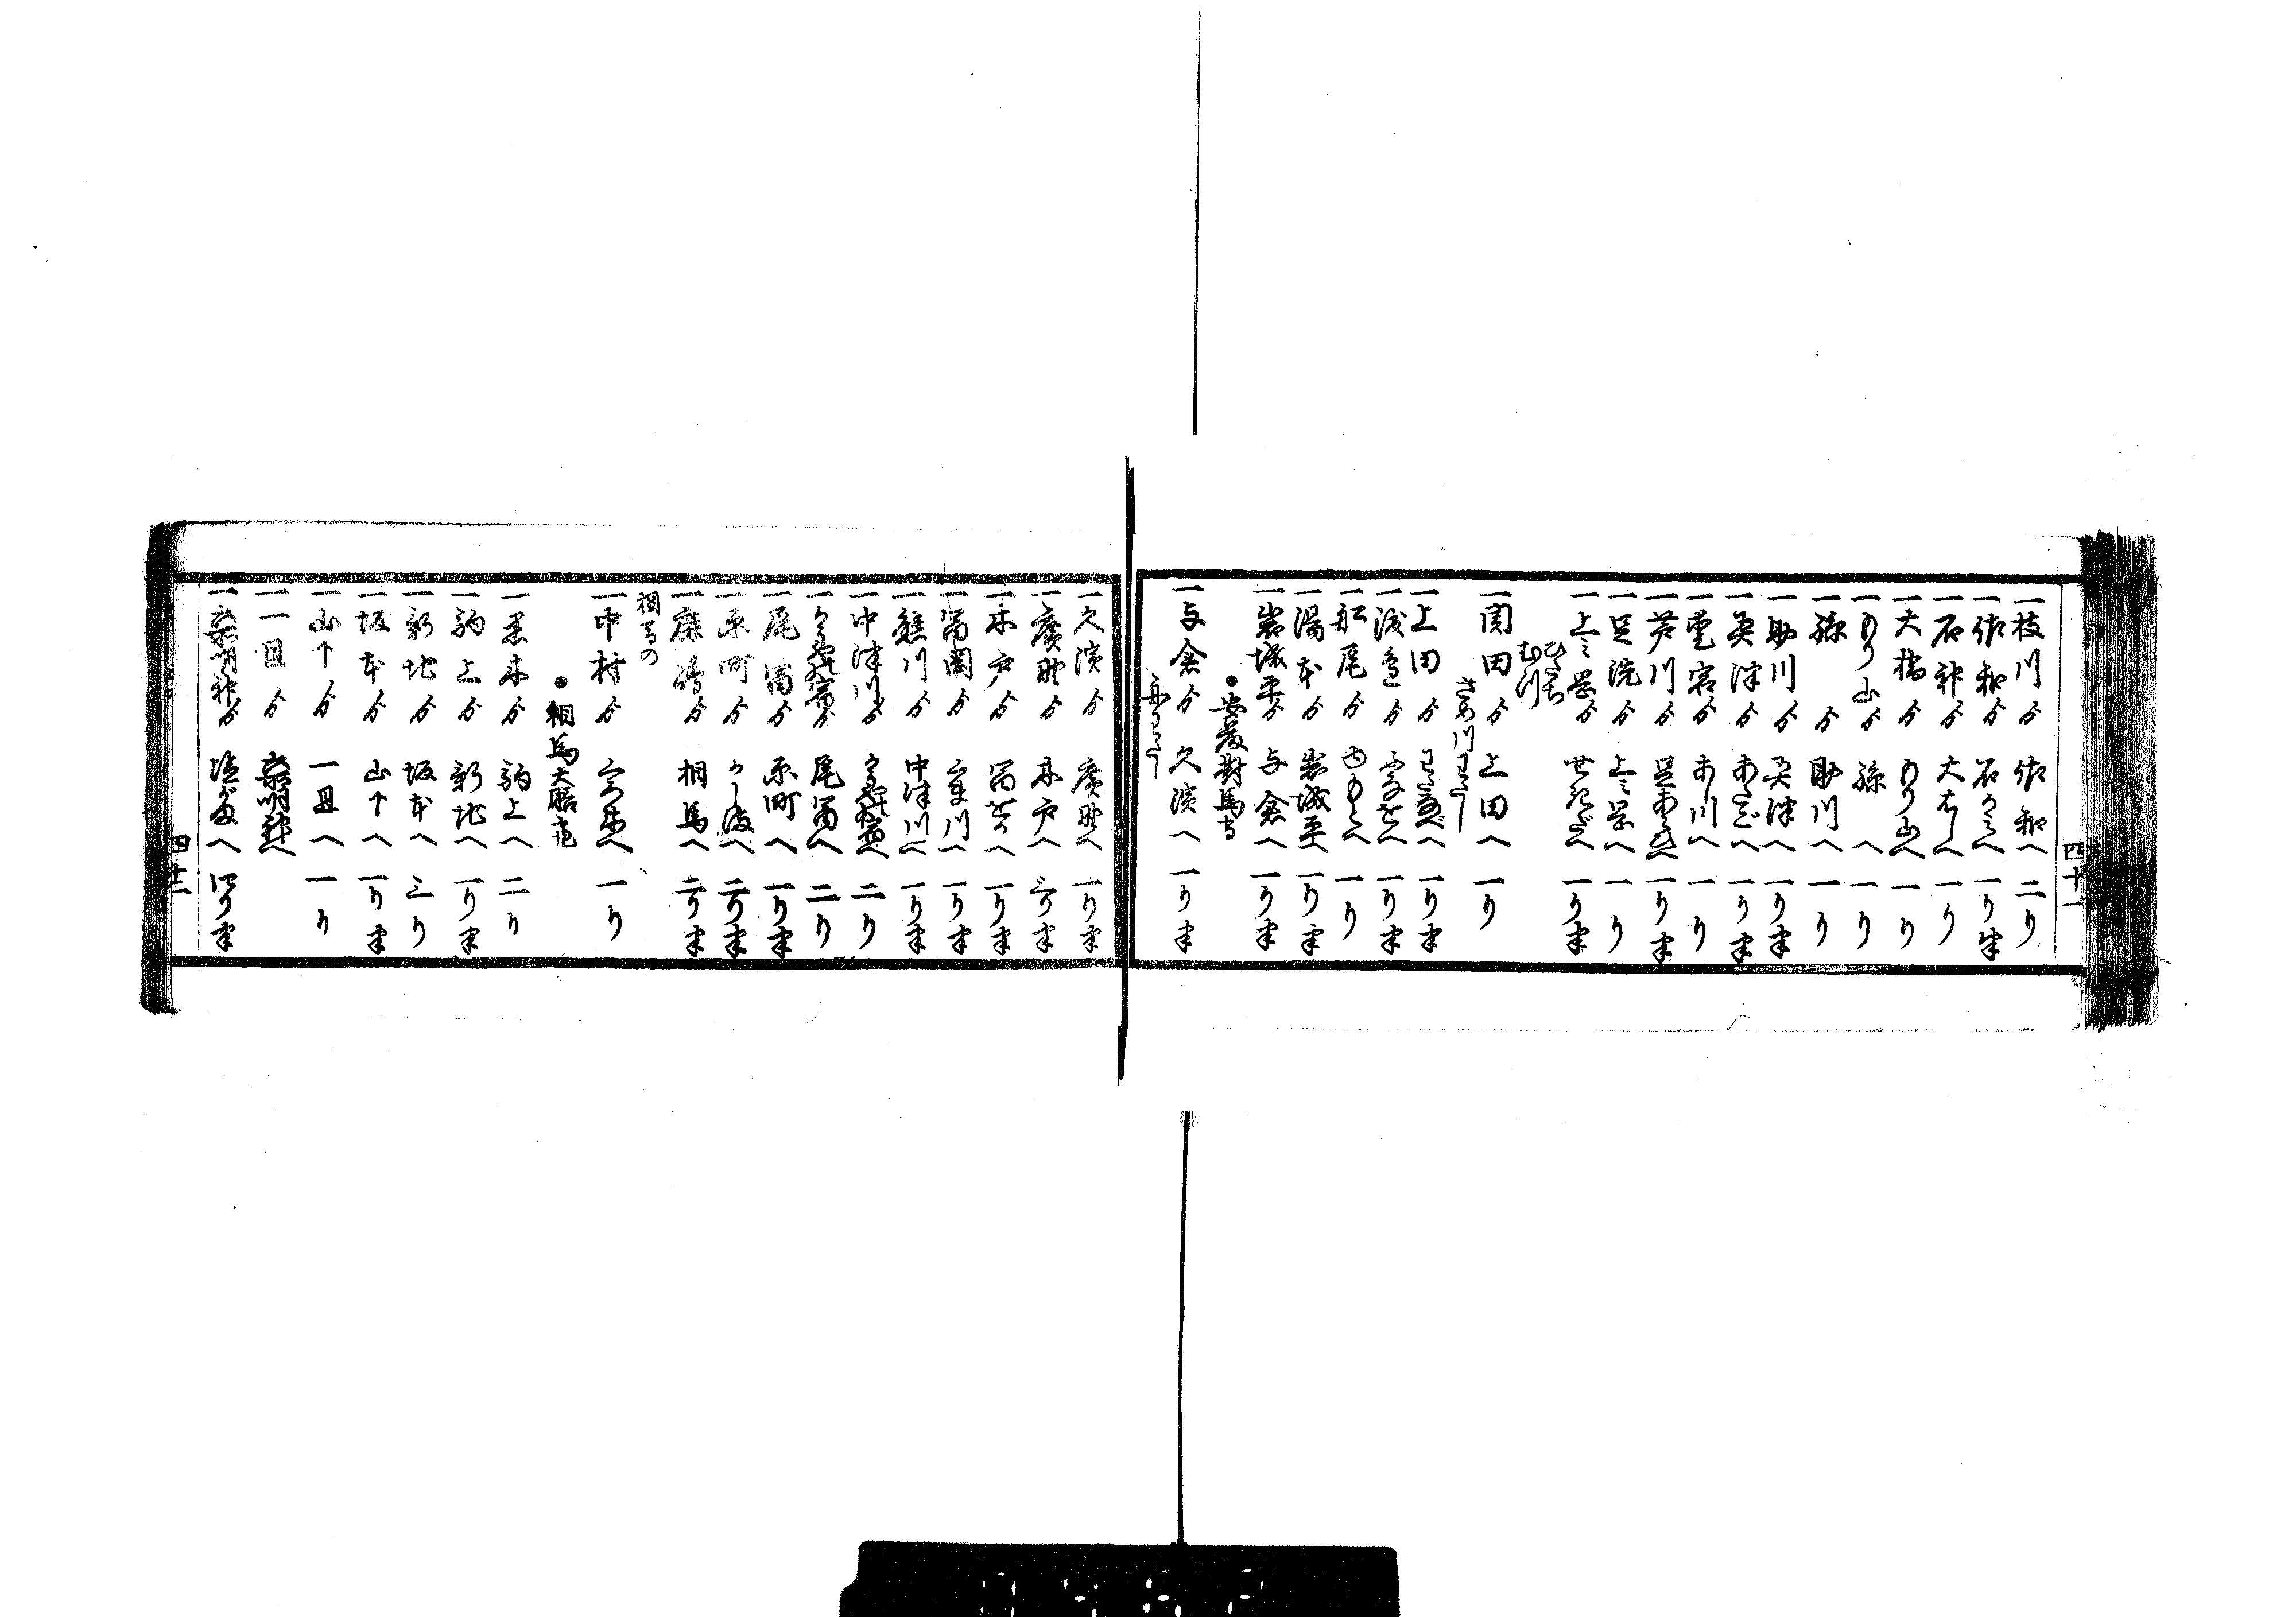 四十一
一枝川ゟ 佐和へ 二り
一佐和ゟ 石かミへ 一り半
一石神ゟ 大はしへ 一り
一大橋ゟ もり山へ 一り
一もり山ゟ 孫へ 一り
一孫ゟ 助川へ 一り
一助川ゟ 奥津へ 一り半
一奥津ゟ あらごへ 一り半
一里宿ゟ あら川へ 一り
一芦川ゟ 足あらひへ 一り半
一足洗ゟ 上ミ岡へ 一り
一上ミ岡ゟ せきだへ 一り半
一関田ゟ 上田へ 一り
さめ川わたし
一上田ゟ わたなべへ 一り半
一渡邉ゟ ふなをへ 一り半
一舩尾ゟ ゆもとへ 一り
一湯本ゟ 岩城平へ 一り半
一岩城平ゟ 与倉へ 一り半
●安藤對馬守
一与倉ゟ 久濱へ 一り半
舟わたし
一久濱ゟ 廣野へ 一り半
一廣野ゟ 木戸へ 三り半
一木戸ゟ 冨をかへ 一り半
一冨岡ゟ くま川へ 一り半
一熊川ゟ 中津川へ 一り半
一中津川ゟ 二り
尾高へ 二り
一尾高ゟ 原町へ 一り半
一原町ゟ かしまへ 二り半
一鹿嶋ゟ 相馬へ 二り半
相馬の
一中村ゟ くろ木へ 一り
●相馬大膳亮
一黒木ゟ 駒上へ 二り
一駒上ゟ 新地へ 一り半
一新地ゟ 坂本へ 三り
一坂本ゟ 山下へ 一り半
一山下ゟ 一里へ 一り
一一里ゟ
四十二